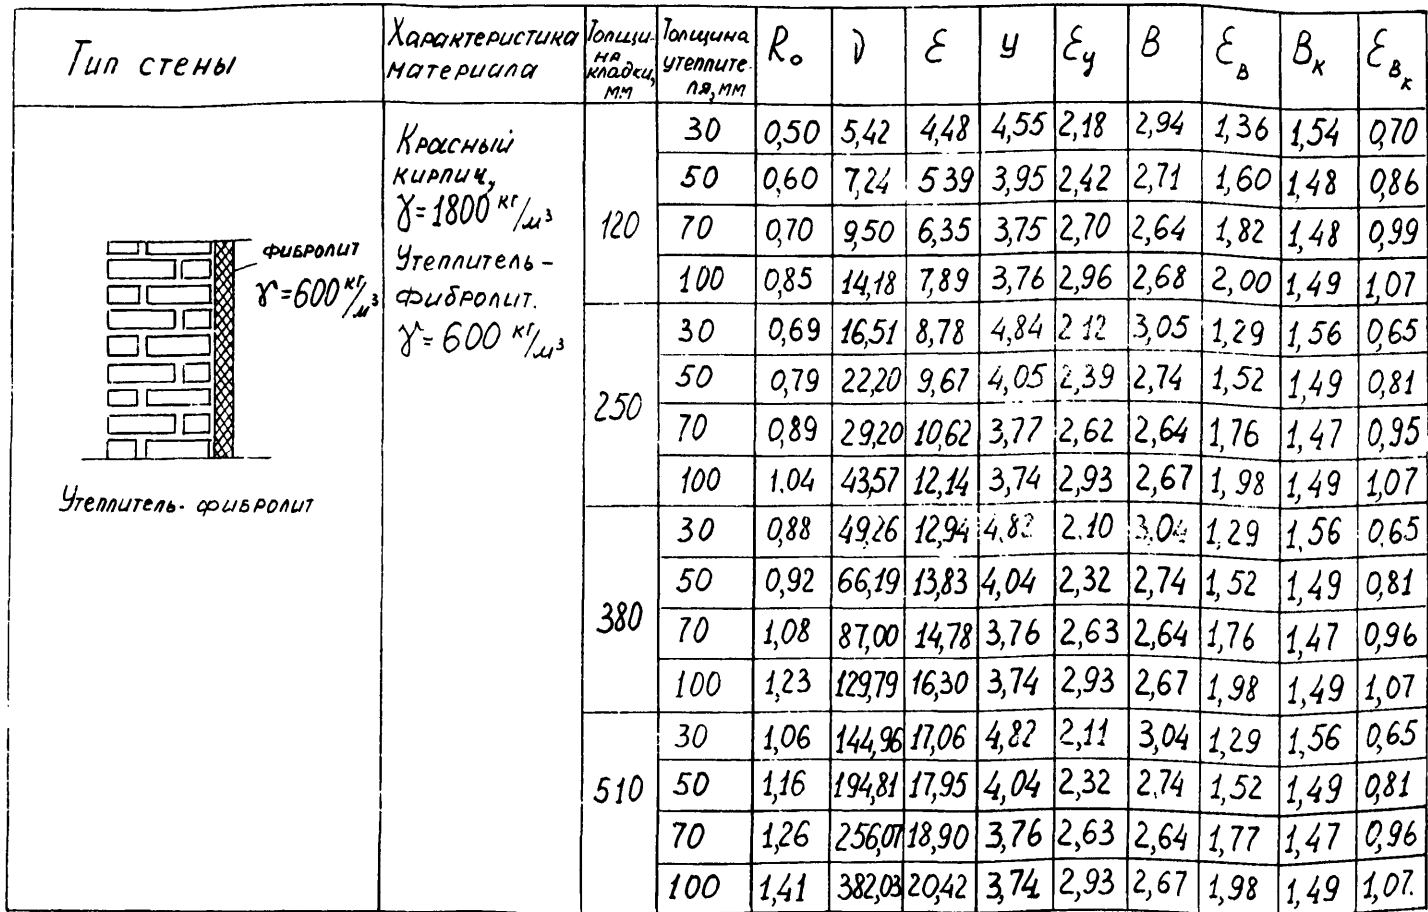 Тип стены
Характеристика материала
Толщина кладки, мм
Толщина утеплителя, мм
R₀ ν ε У ε_у В ε_в В_к ε_в_к
фибролит
γ=600 кг/м³
Утеплитель- фибролит
Красный
кирпич,
γ=1800 кг/м³
Утеплитель–
фибролит.
γ=600 кг/м³
120
30 0,50 5,42 4,48 4,55 2,18 2,94 1,36 1,54 0,70
50 0,60 7,24 539 3,95 2,42 2,71 1,60 1,48 0,86
70 0,70 9,50 6,35 3,75 2,70 2,64 1,82 1,48 0,99
100 0,85 14,18 7,89 3,76 2,96 2,68 2,00 1,49 1,07
250
30 0,69 16,51 8,78 4,84 2 12 3,05 1,29 1,56 0,65
50 0,79 22,20 9,67 4,05 2,39 2,74 1,52 1,49 0,81
70 0,89 29,20 10,62 3,77 2,62 2,64 1,76 1,47 0,95
100 1.04 43,57 12,14 3,74 2,93 2,67 1,98 1,49 1,07
380
30 0,88 49,26 12,94 2.10 3,04 1,29 1,56 0,65
50 0,92 66,19 13,83 4,04 2,32 2,74 1,52 1,49 0,81
70 1,08 87,00 14,78 3,76 2,63 2,64 1,76 1,47 0,96
100 1,23 129,79 16,30 3,74 2,93 2,67 1,98 1,49 1,07
510
30 1,06 144,96 17,06 4,82 2,11 3,04 1,29 1,56 0,65
50 1,16 194,81 17,95 4,04 2,32 2,74 1,52 1,49 0,81
70 1,26 256,07 18,90 3,76 2,63 2,64 1,77 1,47 0,96
100 1,41 382,03 20,42 3,74 2,93 2,67 1,98 1,49 1,07.